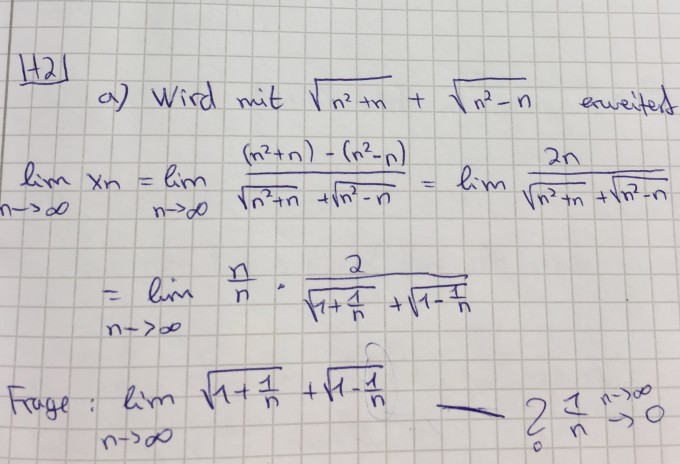 H2
a) Wird mit √(n²+n) + √(n²-n) erweitert
lim n->∞ xn = lim n->∞ ((n²+n) - (n²-n))/(√(n²+n) + √(n²-n)) = lim 2n/(√(n²+n) + √(n²-n))
= lim n->∞ n/n · 2/(√(1+1/n) + √(1-1/n))
Frage : lim n->∞ √(1+1/n) + √(1-1/n) — ? 1/n n->∞ → 0